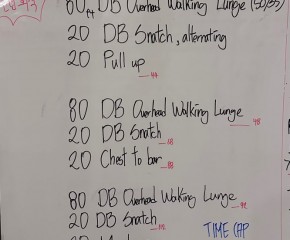 80ft DB Overhead Walking Lunge (50/35)
20 DB Snatch, alternating
20 Pull up
80 DB Overhead Walking Lunge
20 DB Snatch
20 Chest to bar
80 DB Overhead Walking Lunge
20 DB Snatch
TIME CAP